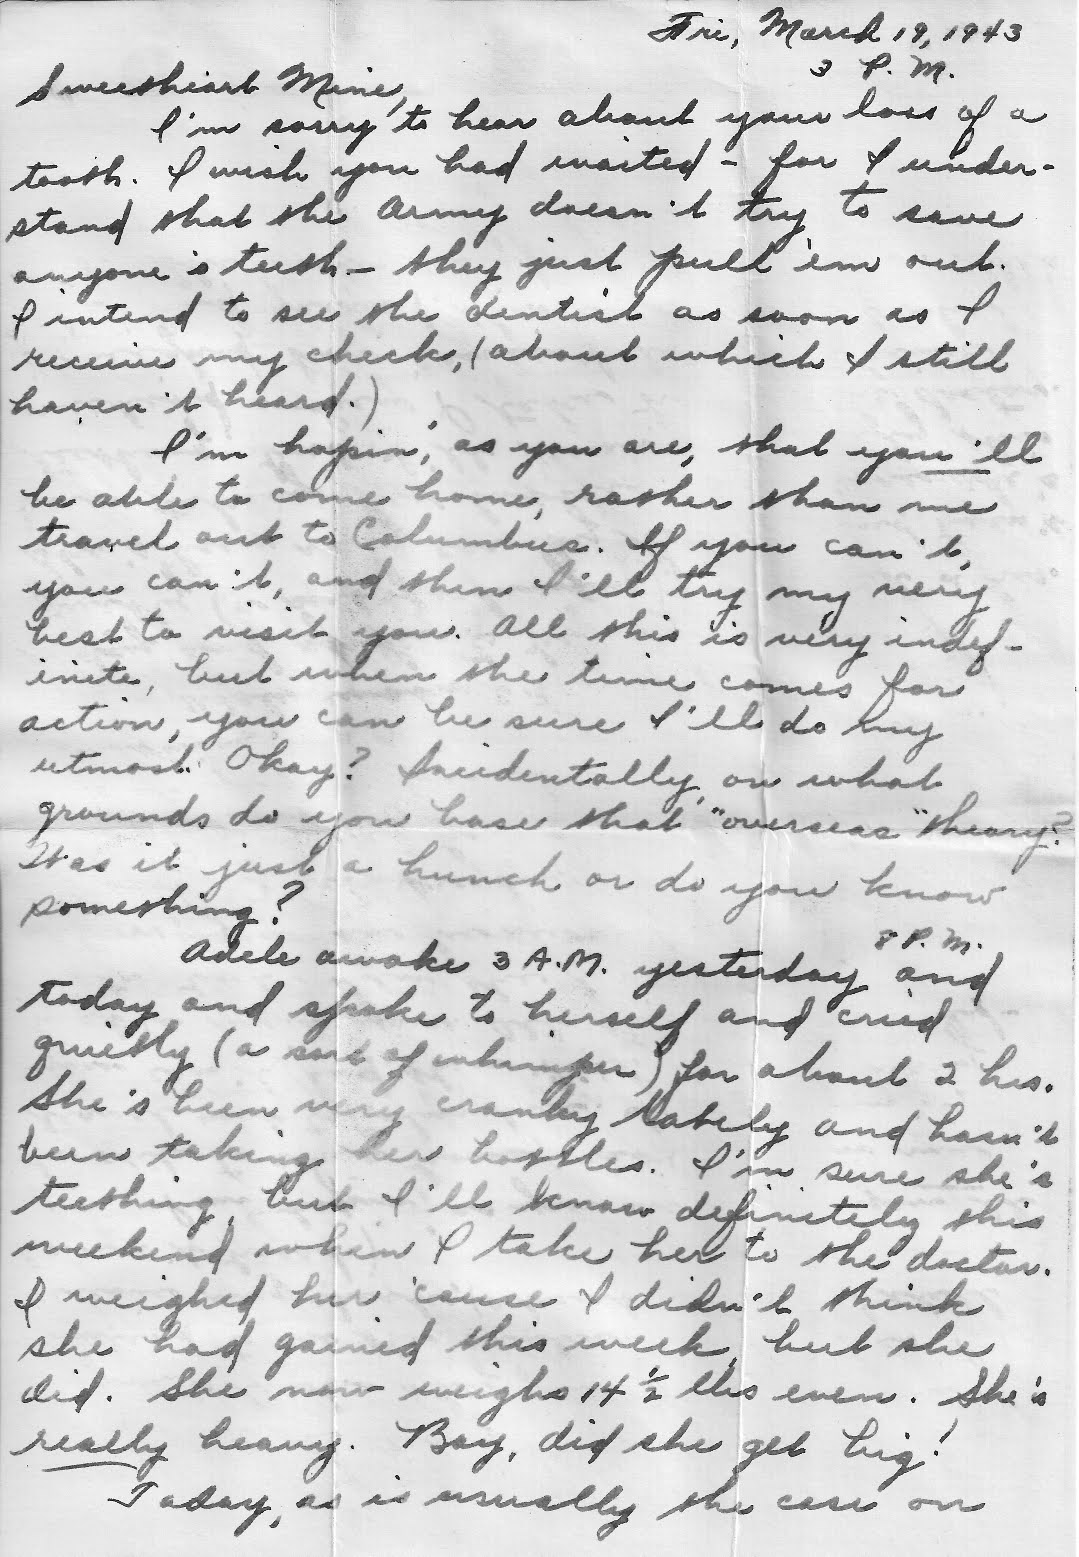 Fri, March 19, 1943
3 P.M.
Sweetheart Mine,
I'm sorry to hear about your loss of a
tooth. I wish you had waited - for I under-
stand that the Army doesn't try to save
anyone's teeth - they just pull 'em out.
I intend to see the dentist as soon as I
receive my check, (about which I still
haven't heard.)
I'm hopin', as you are, that you'll
be able to come home, rather than me
travel out to Columbus. If you can't,
you can't, and then I'll try my very
best to visit you. All this is very indef-
inite, but when the time comes for
action, you can be sure I'll do my
utmost. Okay? Incidentally, on what
grounds do you base that "overseas" theory?
Was it just a hunch or do you know
something?
8 P.M.
Adele awoke 3 A.M. yesterday and
today and spoke to herself and cried
quietly (a sort of whimper) for about 2 hrs.
She's been very cranky lately and hasn't
been taking her bottles. I'm sure she's
teething, but I'll know definitely this
weekend when I take her to the doctor.
I weighed her 'cause I didn't think
she had gained this week, but she
did. She now weighs 14 1/2 lbs even. She's
really heavy. Boy, did she get big!
Today, as is usually the case on